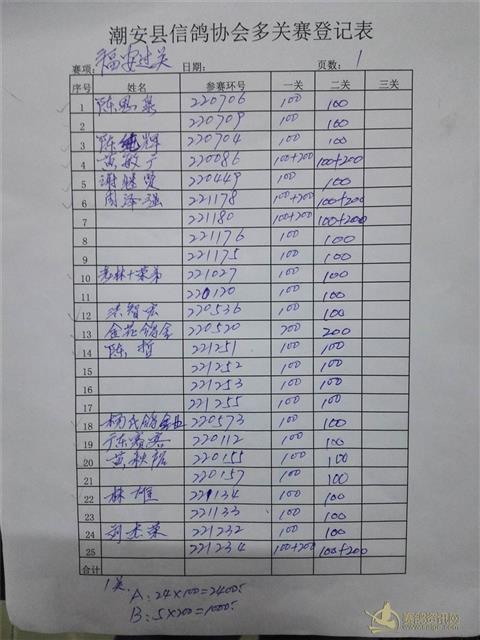 潮安县信鸽协会多关赛登记表
赛项: 福安过关 日期: 页数: 1
序号 姓名 参赛环号 一关 二关 三关
1 陈 220706 100 100
2 220709 100 100
3 陈纯辉 220704 100 100
4 黄敏广 220086 100+200 100+200
5 谢继贤 220449 100 100
6 周泽强 221178 100+200 100+200
7 221180 100+200 100+200
8 221176 100 100
9 221175 100 100
10 221027 100 100
11 220120 100 100
12 洪智宏 220536 100 100
13 金苑鸽舍 220520 200 200
14 陈哲 221251 100 100
15 221252 100 100
16 221253 100 100
17 221255 100 100
18 杨氏鸽业 220573 100 100
19 220112 100 100
20 黄秋 220155 100 100
21 220157 100 100
22 林雄 221134 100 100
23 221133 100 100
24 刘光荣 221232 100 100
25 221234 100+200 100+200
合计
1关.
A: 24×100=2400
B: 5×200=1000
赛鸽资讯网